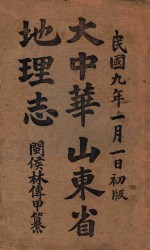 民國九年一月一日初版
大中華山東省
地理志
閩侯林傳甲纂